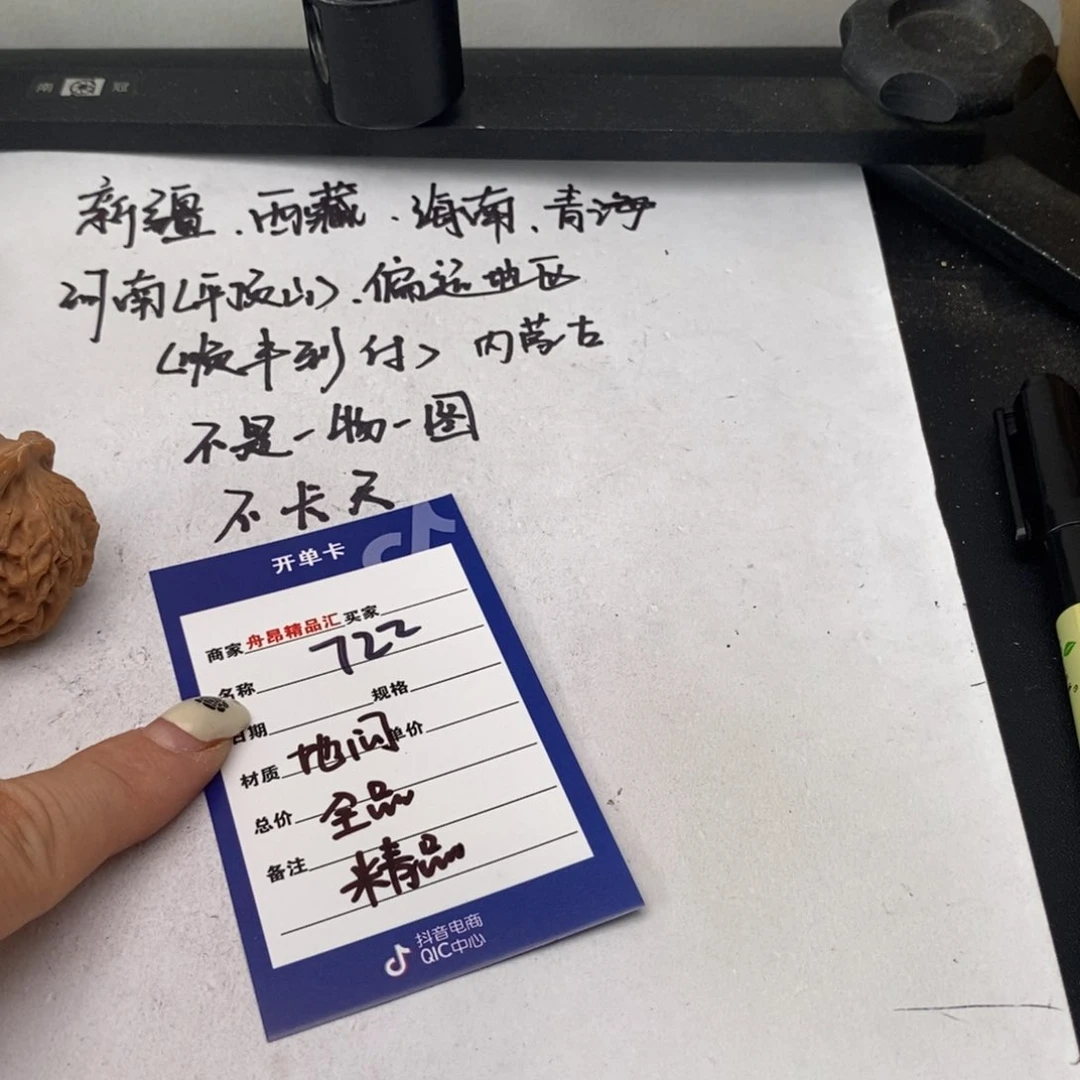 南冠
新疆、西藏、海南、青海
河南(平顶山)、偏远地区
(顺丰到付) 内蒙古
不是一物一图
不卡天
开单卡
商家 舟昂精品汇 买家
722
名称
规格
日期
单价
材质 地闷
总价 全品
备注 精品
抖音电商
QIC中心